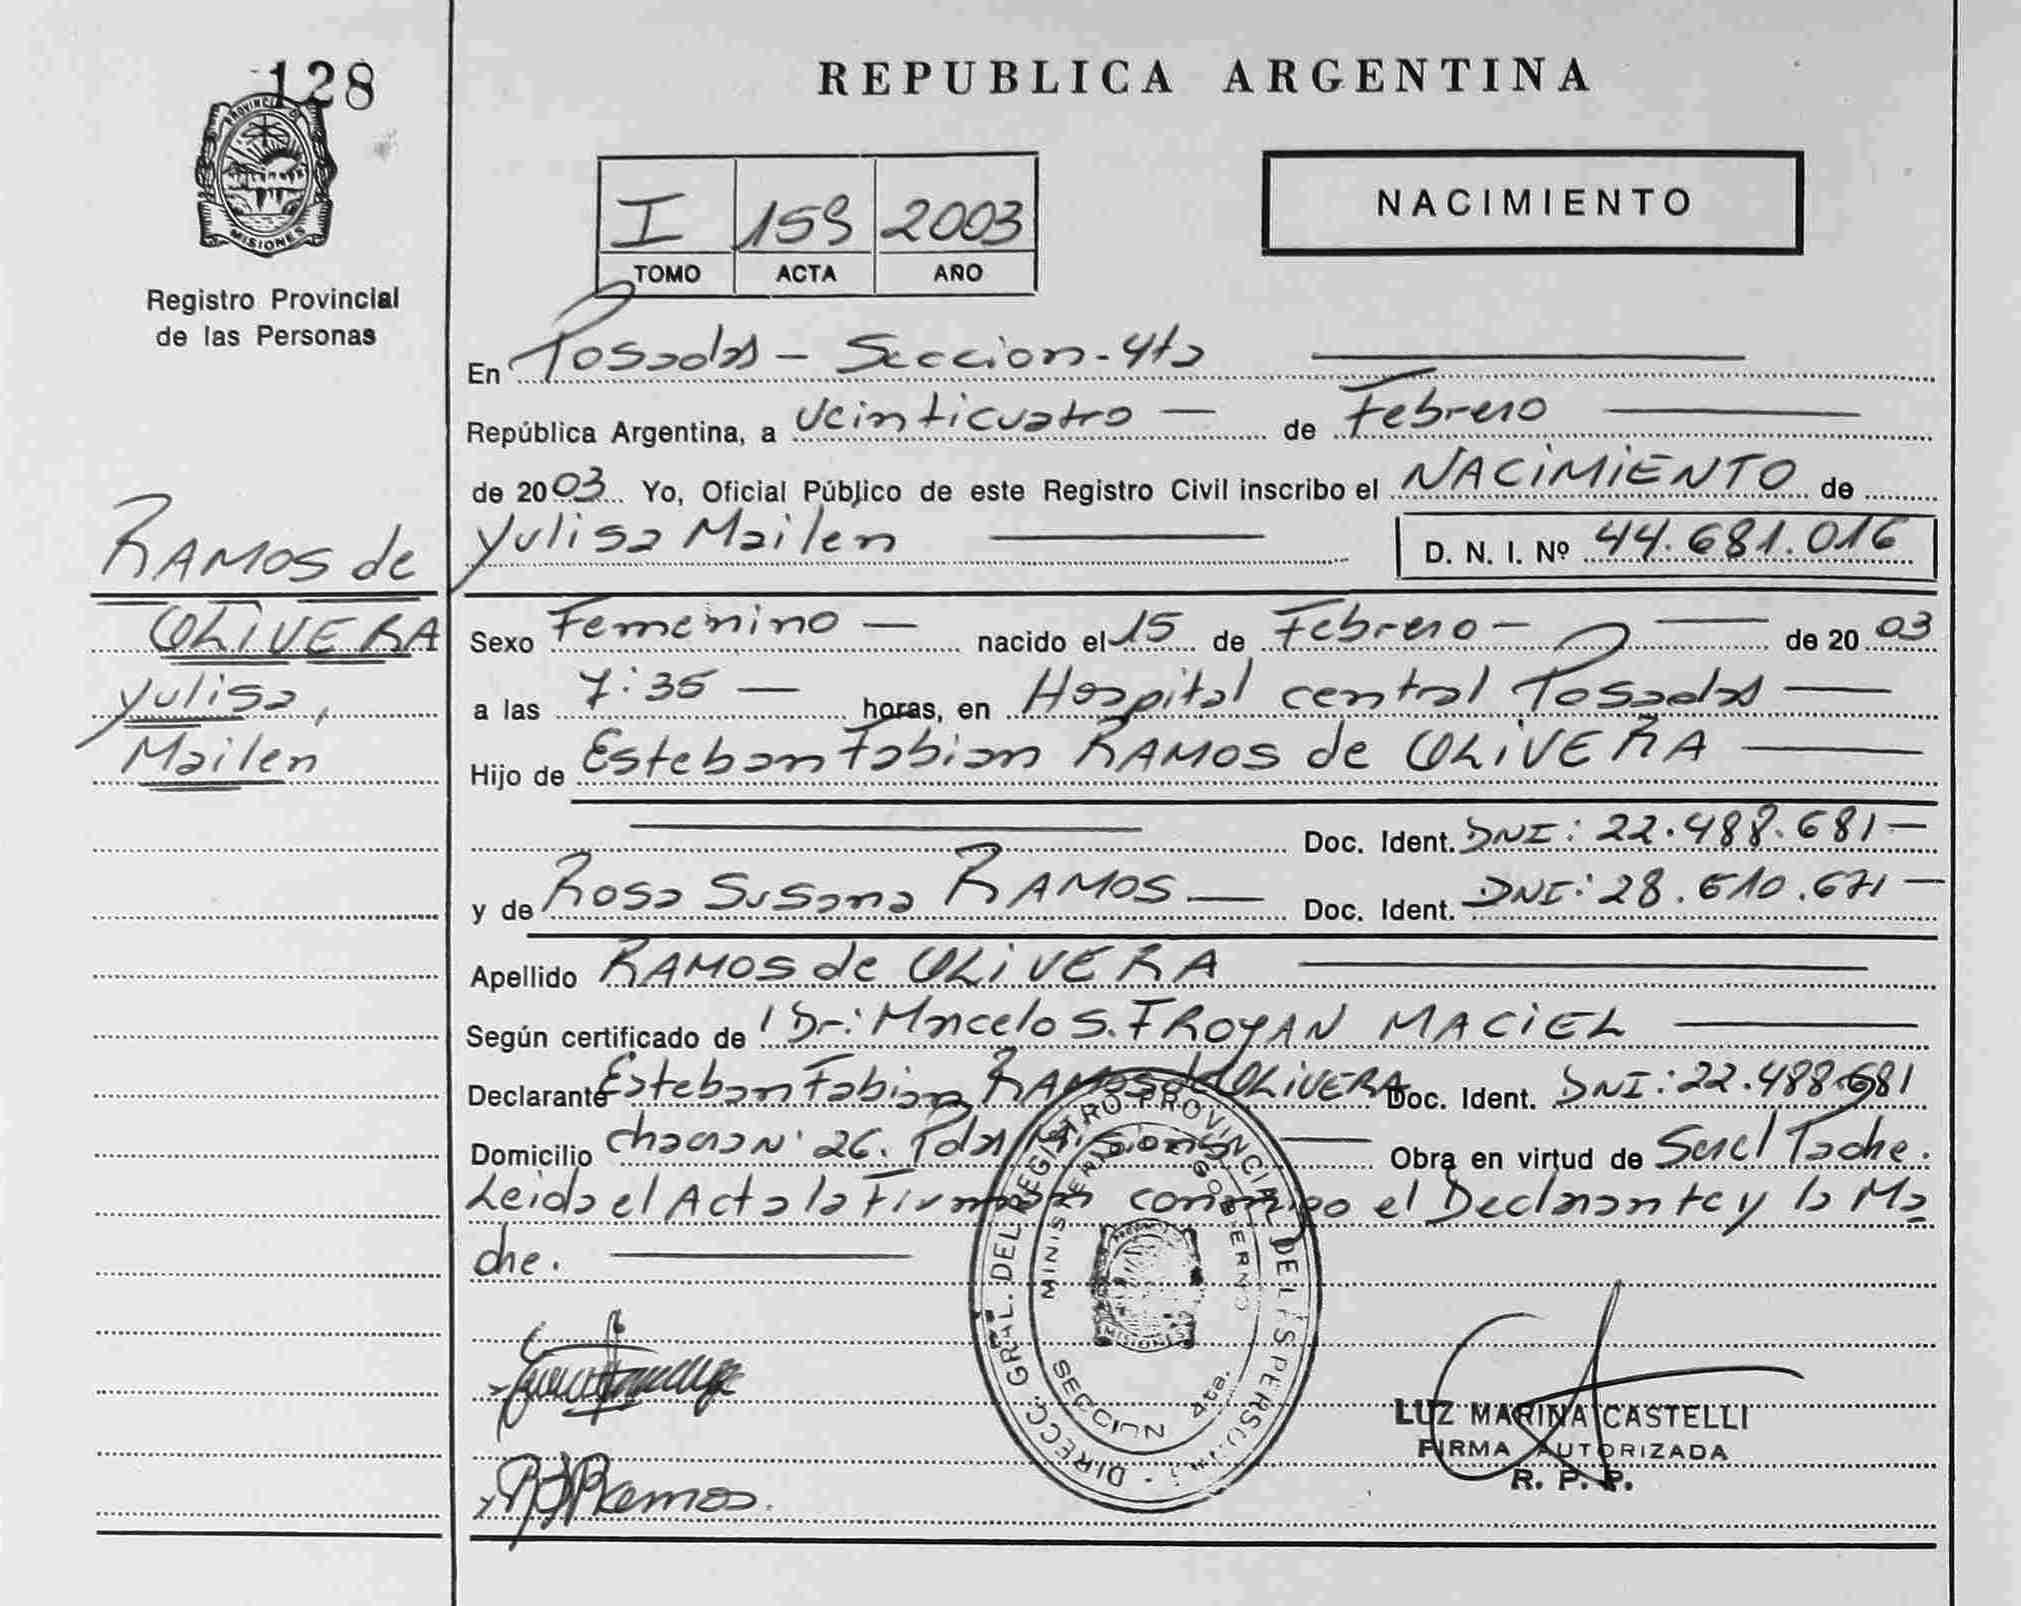 128
PROVINCIA DE
MISIONES
Registro Provincial
de las Personas
RAMOS de
OLIVERA
Yulisa,
Mailen
REPUBLICA ARGENTINA
I 159 2003
TOMO ACTA AÑO
NACIMIENTO
En Posadas - Seccion - 4ta
República Argentina, a veinticuatro — de Febrero
de 2003 Yo, Oficial Público de este Registro Civil inscribo el NACIMIENTO de
Yulisa Mailen D. N. I. Nº 44.681.016
Sexo Femenino — nacido el 15 de Febrero — de 20 03
a las 7:35 — horas, en Hospital central Posadas
Hijo de Esteban Fabian RAMOS de OLIVERA
Doc. Ident. DNI: 22.488.681 —
y de Rosa Susana RAMOS — Doc. Ident. DNI: 28.610.671 —
Apellido RAMOS de OLIVERA
Según certificado de Dr: Marcelo S. FROYAN MACIEL
Declarante Esteban Fabian RAMOS de OLIVERA Doc. Ident. DNI: 22.488.681
Domicilio chacra N° 26. Pdas Misiones — Obra en virtud de Ser el Padre.
Leida el Acta la Firman conmigo el Declarante y la Ma
dre.
DIRECC. GRAL. DEL REGISTRO PROVINCIAL DE LAS PERSONAS
MINISTERIO GOBIERNO
MISIONES
SECCION 4ta.
LUZ MARINA CASTELLI
FIRMA AUTORIZADA
R. P. P.
Ramos.